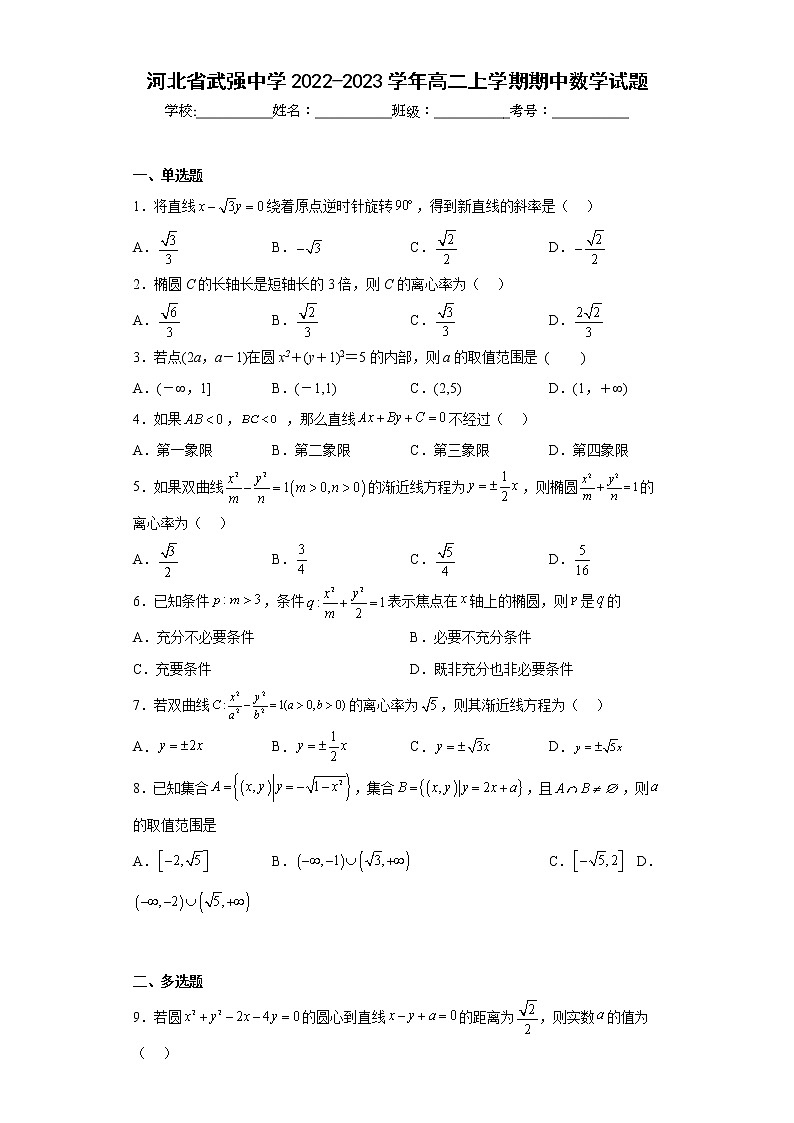 河北省武强中学2022-2023学年高二上学期期中数学试题
学校:___________姓名：___________班级：___________考号：___________
一、单选题
1．将直线x－√3y＝0绕着原点逆时针旋转90°，得到新直线的斜率是（ ）
A．√3/3 B．－√3 C．√2/2 D．－√2/2
2．椭圆C的长轴长是短轴长的3倍，则C的离心率为（ ）
A．√6/3 B．√2/3 C．√3/3 D．2√2/3
3．若点(2a，a－1)在圆x²＋(y＋1)²＝5的内部，则a的取值范围是（ ）
A．(－∞，1] B．(－1,1) C．(2,5) D．(1，＋∞)
4．如果AB＜0，BC＜0 ，那么直线Ax＋By＋C＝0不经过（ ）
A．第一象限 B．第二象限 C．第三象限 D．第四象限
5．如果双曲线x²/m－y²/n＝1(m＞0,n＞0)的渐近线方程为y＝±1/2x，则椭圆x²/m＋y²/n＝1的
离心率为（ ）
A．√3/2 B．3/4 C．√5/4 D．5/16
6．已知条件p:m＞3，条件q:x²/m＋y²/2＝1表示焦点在x轴上的椭圆，则p是q的
A．充分不必要条件 B．必要不充分条件
C．充要条件 D．既非充分也非必要条件
7．若双曲线C:x²/a²－y²/b²＝1(a＞0,b＞0)的离心率为√5，则其渐近线方程为（ ）
A．y＝±2x B．y＝±1/2x C．y＝±√3x D．y＝±√5x
8．已知集合A＝{(x,y)|y＝－√(1－x²)}，集合B＝{(x,y)|y＝2x＋a}，且A∩B≠∅，则a
的取值范围是
A．[－2,√5] B．(－∞,－1)∪(√3,＋∞) C．[－√5,2] D．
(－∞,－2)∪(√5,＋∞)
二、多选题
9．若圆x²＋y²－2x－4y＝0的圆心到直线x－y＋a＝0的距离为√2/2，则实数a的值为
（ ）